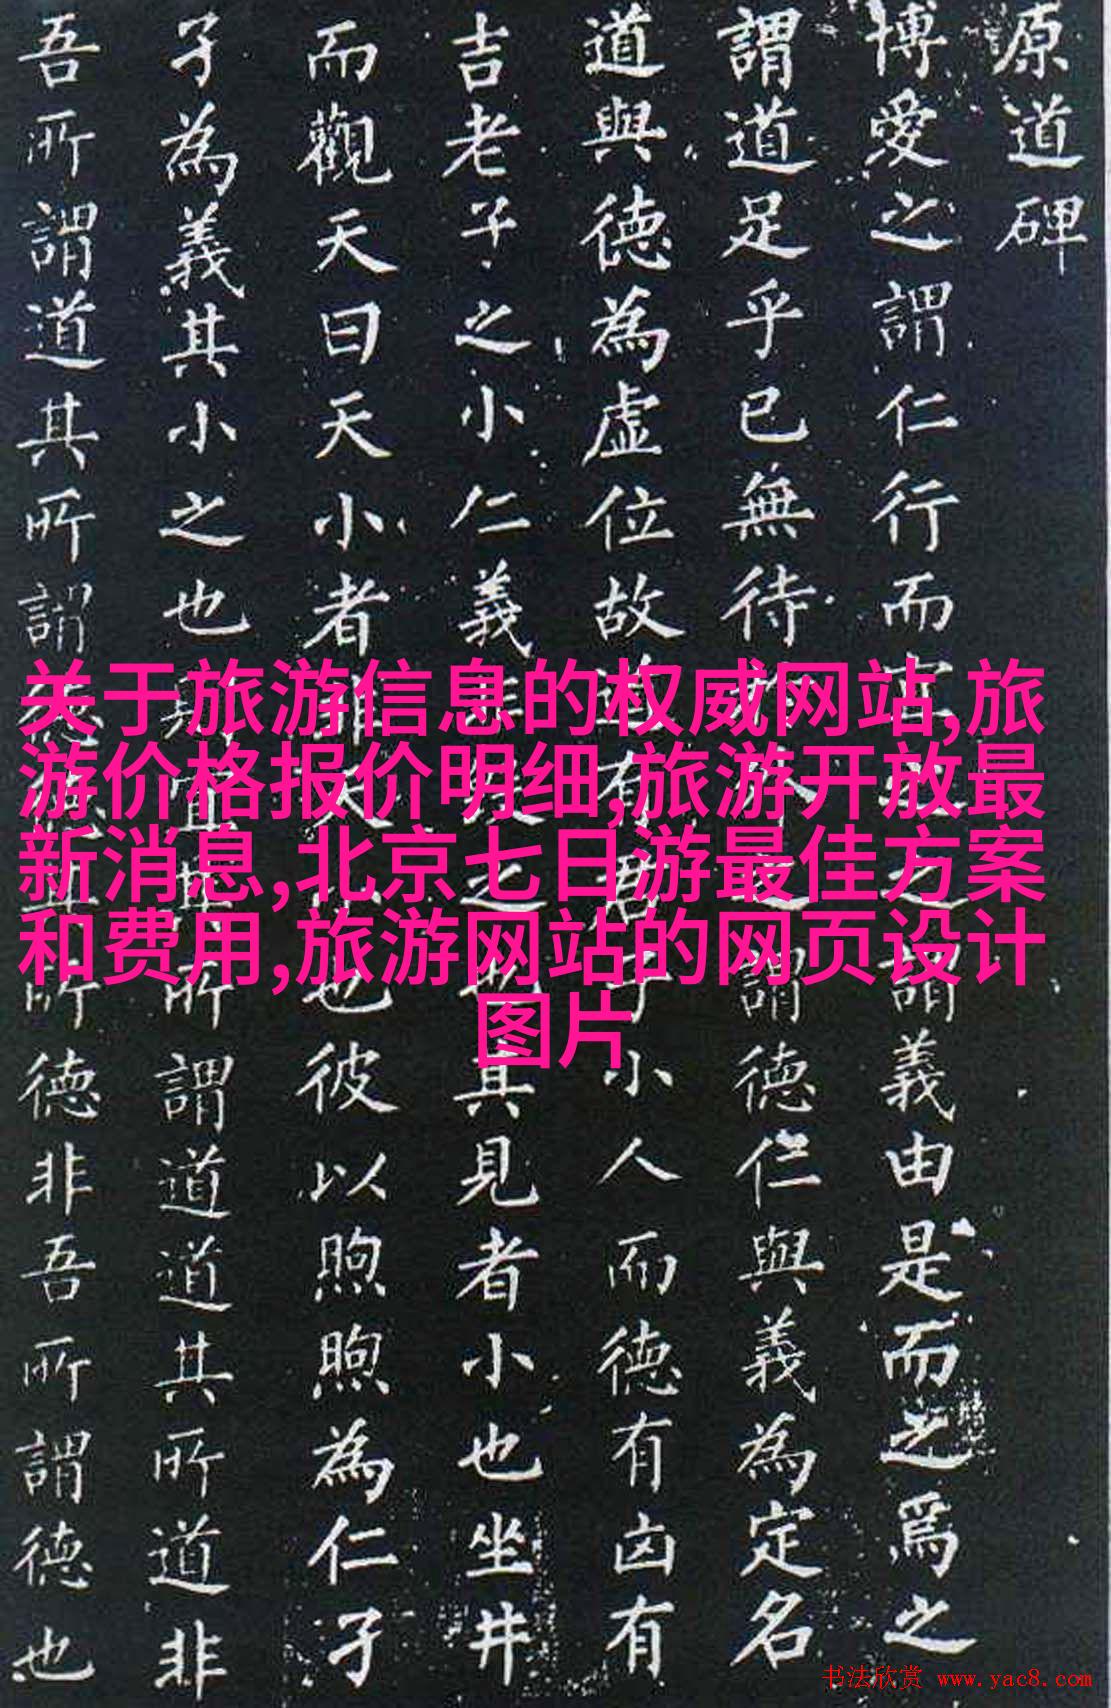 原道碑
博愛之謂仁行而宜之之謂義由是而之爲之
謂道足乎已無待於外之謂德仁與義為定名
道與德為虛位故道有君子小人而德有凶有
吉老子之小仁義非毀之也其見者小也坐井
而觀天曰天小者非天小也彼以煦煦為仁孑
孑為義其小之也則宜其所謂道道其所道非
吾所謂道其所謂德德其所德非吾所謂德也
关于旅游信息的权威网站,旅
游价格报价明细,旅游开放最
新消息,北京七日游最佳方案
和费用,旅游网站的网页设计
图片
书法欣赏 www.yac8.com